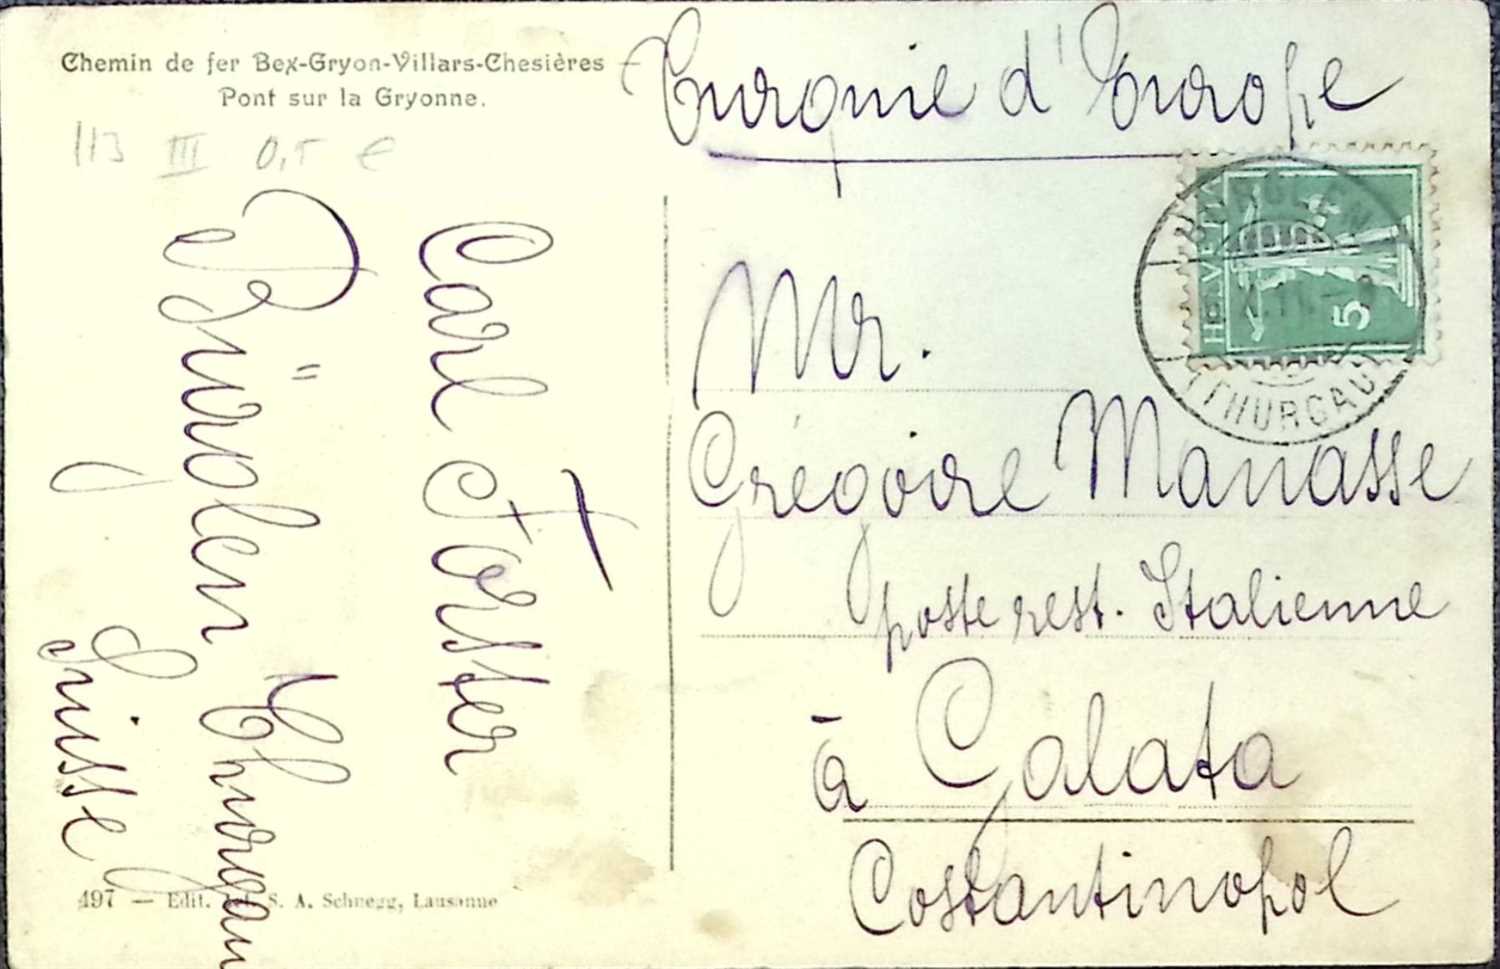 Chemin de fer Bex-Gryon-Villars-Chesières
Pont sur la Gryonne.
113 III 0,5 €
Carl Forster
Bürglen Thurgau
Suisse
497 — Edit. S. A. Schnegg, Lausanne
Turquie d'Europe
HELVETIA
5
BÜRGLEN
(THURGAU)
Mr.
Grégoire Manasse
poste rest. Italienne
à Galata
Costantinopol